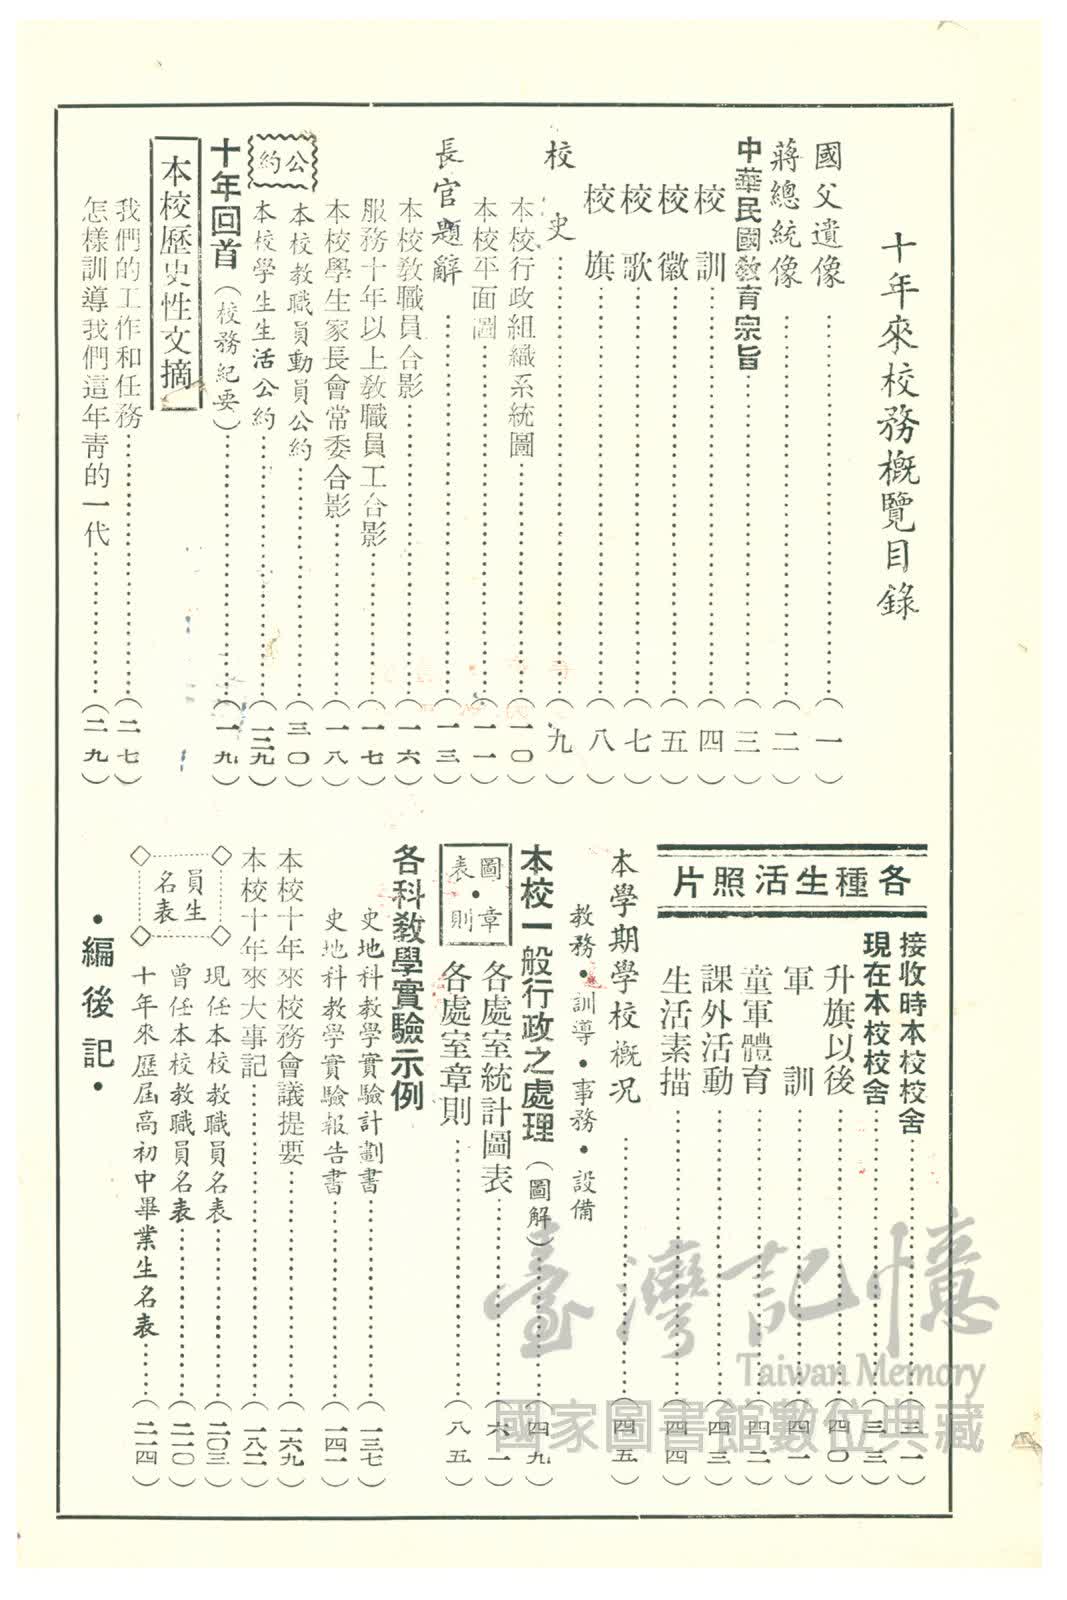 十年來校務概覽目錄
國父遺像……(一)
蔣總統像……(二)
中華民國教育宗旨……(三)
校訓……(四)
校徽……(五)
校歌……(七)
校旗……(八)
校史……(九)
本校行政組織系統圖……(一〇)
本校平面圖……(一一)
長官題辭……(一三)
本校教職員合影……(一六)
服務十年以上教職員工合影……(一七)
本校學生家長會常委合影……(一八)
公約
本校教職員動員公約……(三〇)
本校學生生活公約……
十年回首(校務紀要)……(一九)
本校歷史性文摘
我們的工作和任務……(二七)
怎樣訓導我們這年青的一代……(二九)
各種生活照片
接收時本校校舍……(三一)
現在本校校舍……(三三)
升旗以後……(四〇)
軍訓……(四一)
童軍體育……(四二)
課外活動……(四三)
生活素描……(四四)
本學期學校概況……(四五)
教務•訓導•事務•設備
本校一般行政之處理(圖解)……(四九)
圖表•章則
各處室統計圖表……(六一)
各處室章則……(八五)
各科教學實驗示例
史地科教學實驗計劃書……(一三七)
史地科教學實驗報告書……(一四一)
本校十年來校務會議提要……(一六九)
本校十年來大事記……(一八二)
員生名表
現任本校教職員名表……(二〇三)
曾任本校教職員名表……(二一〇)
十年來歷屆高初中畢業生名表……(二一四)
•編後記•
臺灣記憶
Taiwan Memory
國家圖書館數位典藏